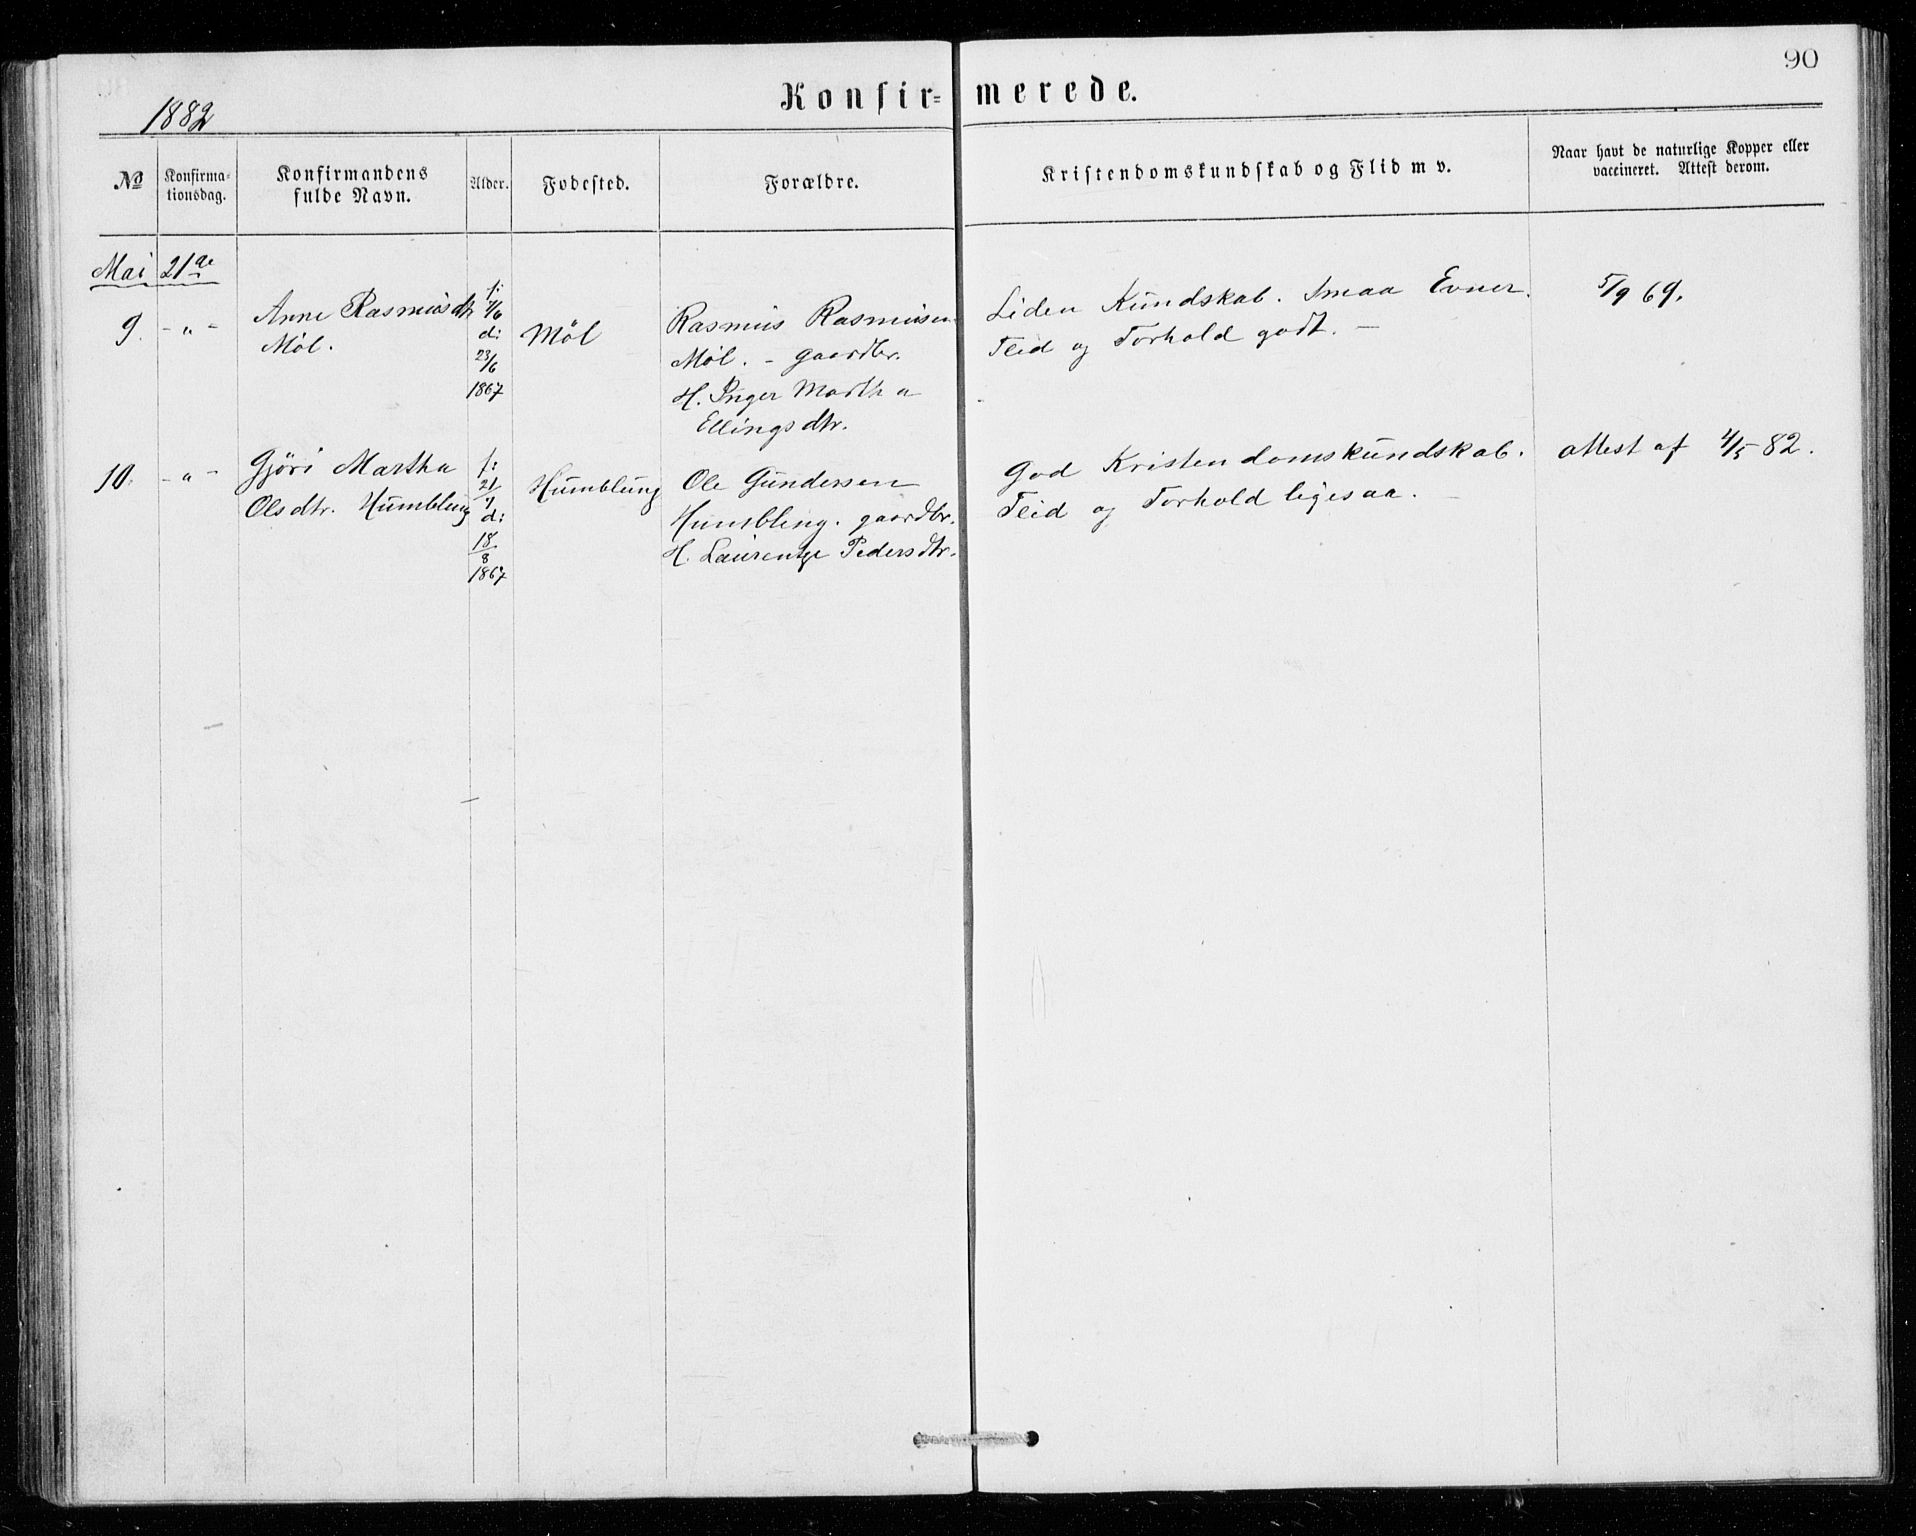 90
Konfir=merede.
1882
№ Konfirma-tionsdag. Konfirmandens fulde Navn. Alder. Fødested. Forældre. Kristendomskundskab og Flid m v. Naar havt de naturlige Kopper eller vaccineret. Attest derom.
Mai 21de
9. - " - Anne Rasmusdtr
Møl.
f:
7/6
d:
23/6
1867
Møl
Rasmus Rasmusen
Møl. - gaardbr.
H. Inger Martha
Ellingsdtr.
Liden Kundskab. Smaa Evner.
Flid og Forhold godt. -
5/9 69.
10. - " - Gjøri Martha
Olsdtr. Humblung
f:
21/7
d:
18/8
1867
Humblung
Ole Gundersen
Humbling. gaardbr.
H. Laurentze Pedersdtr.
God Kristendomskundskab.
Flid og Forhold ligesaa. -
Attest af 4/5 - 82.